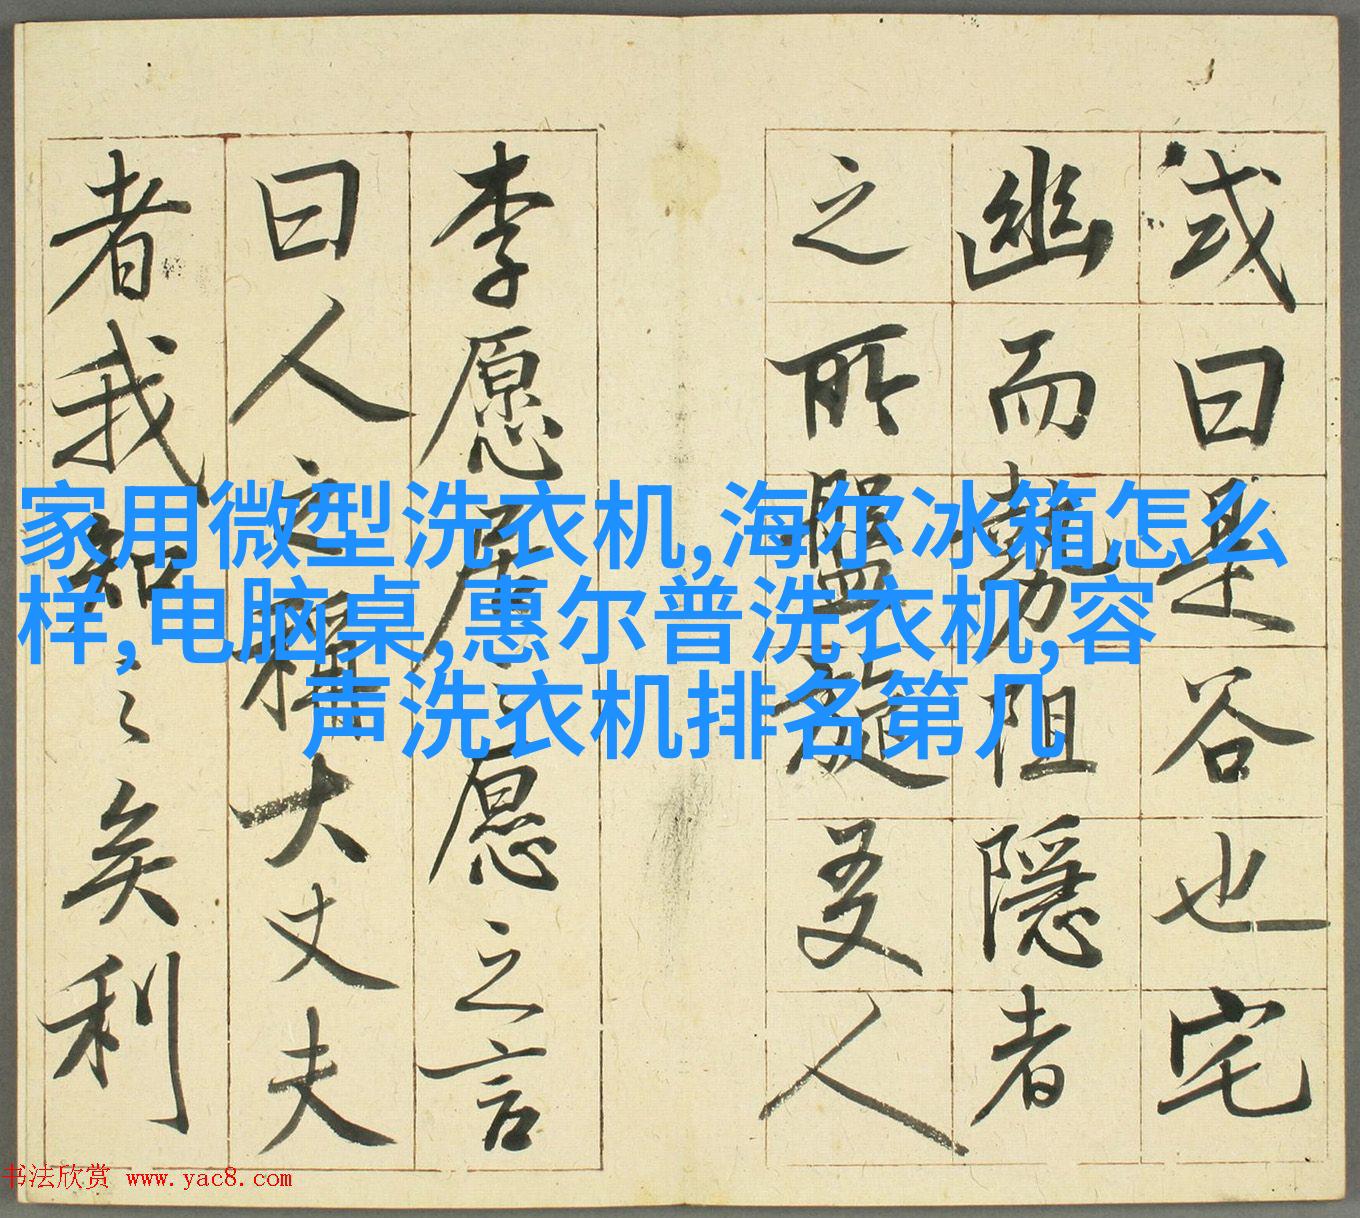 或曰是谷也宅
幽而勢阻隱者
之所盤旋友人
李愿居之愿之言
曰人之稱大丈夫
者我知之矣利
家用微型洗衣机,海尔冰箱怎么
样,电脑桌,惠尔普洗衣机,容
声洗衣机排名第几
书法欣赏 www.yac8.com